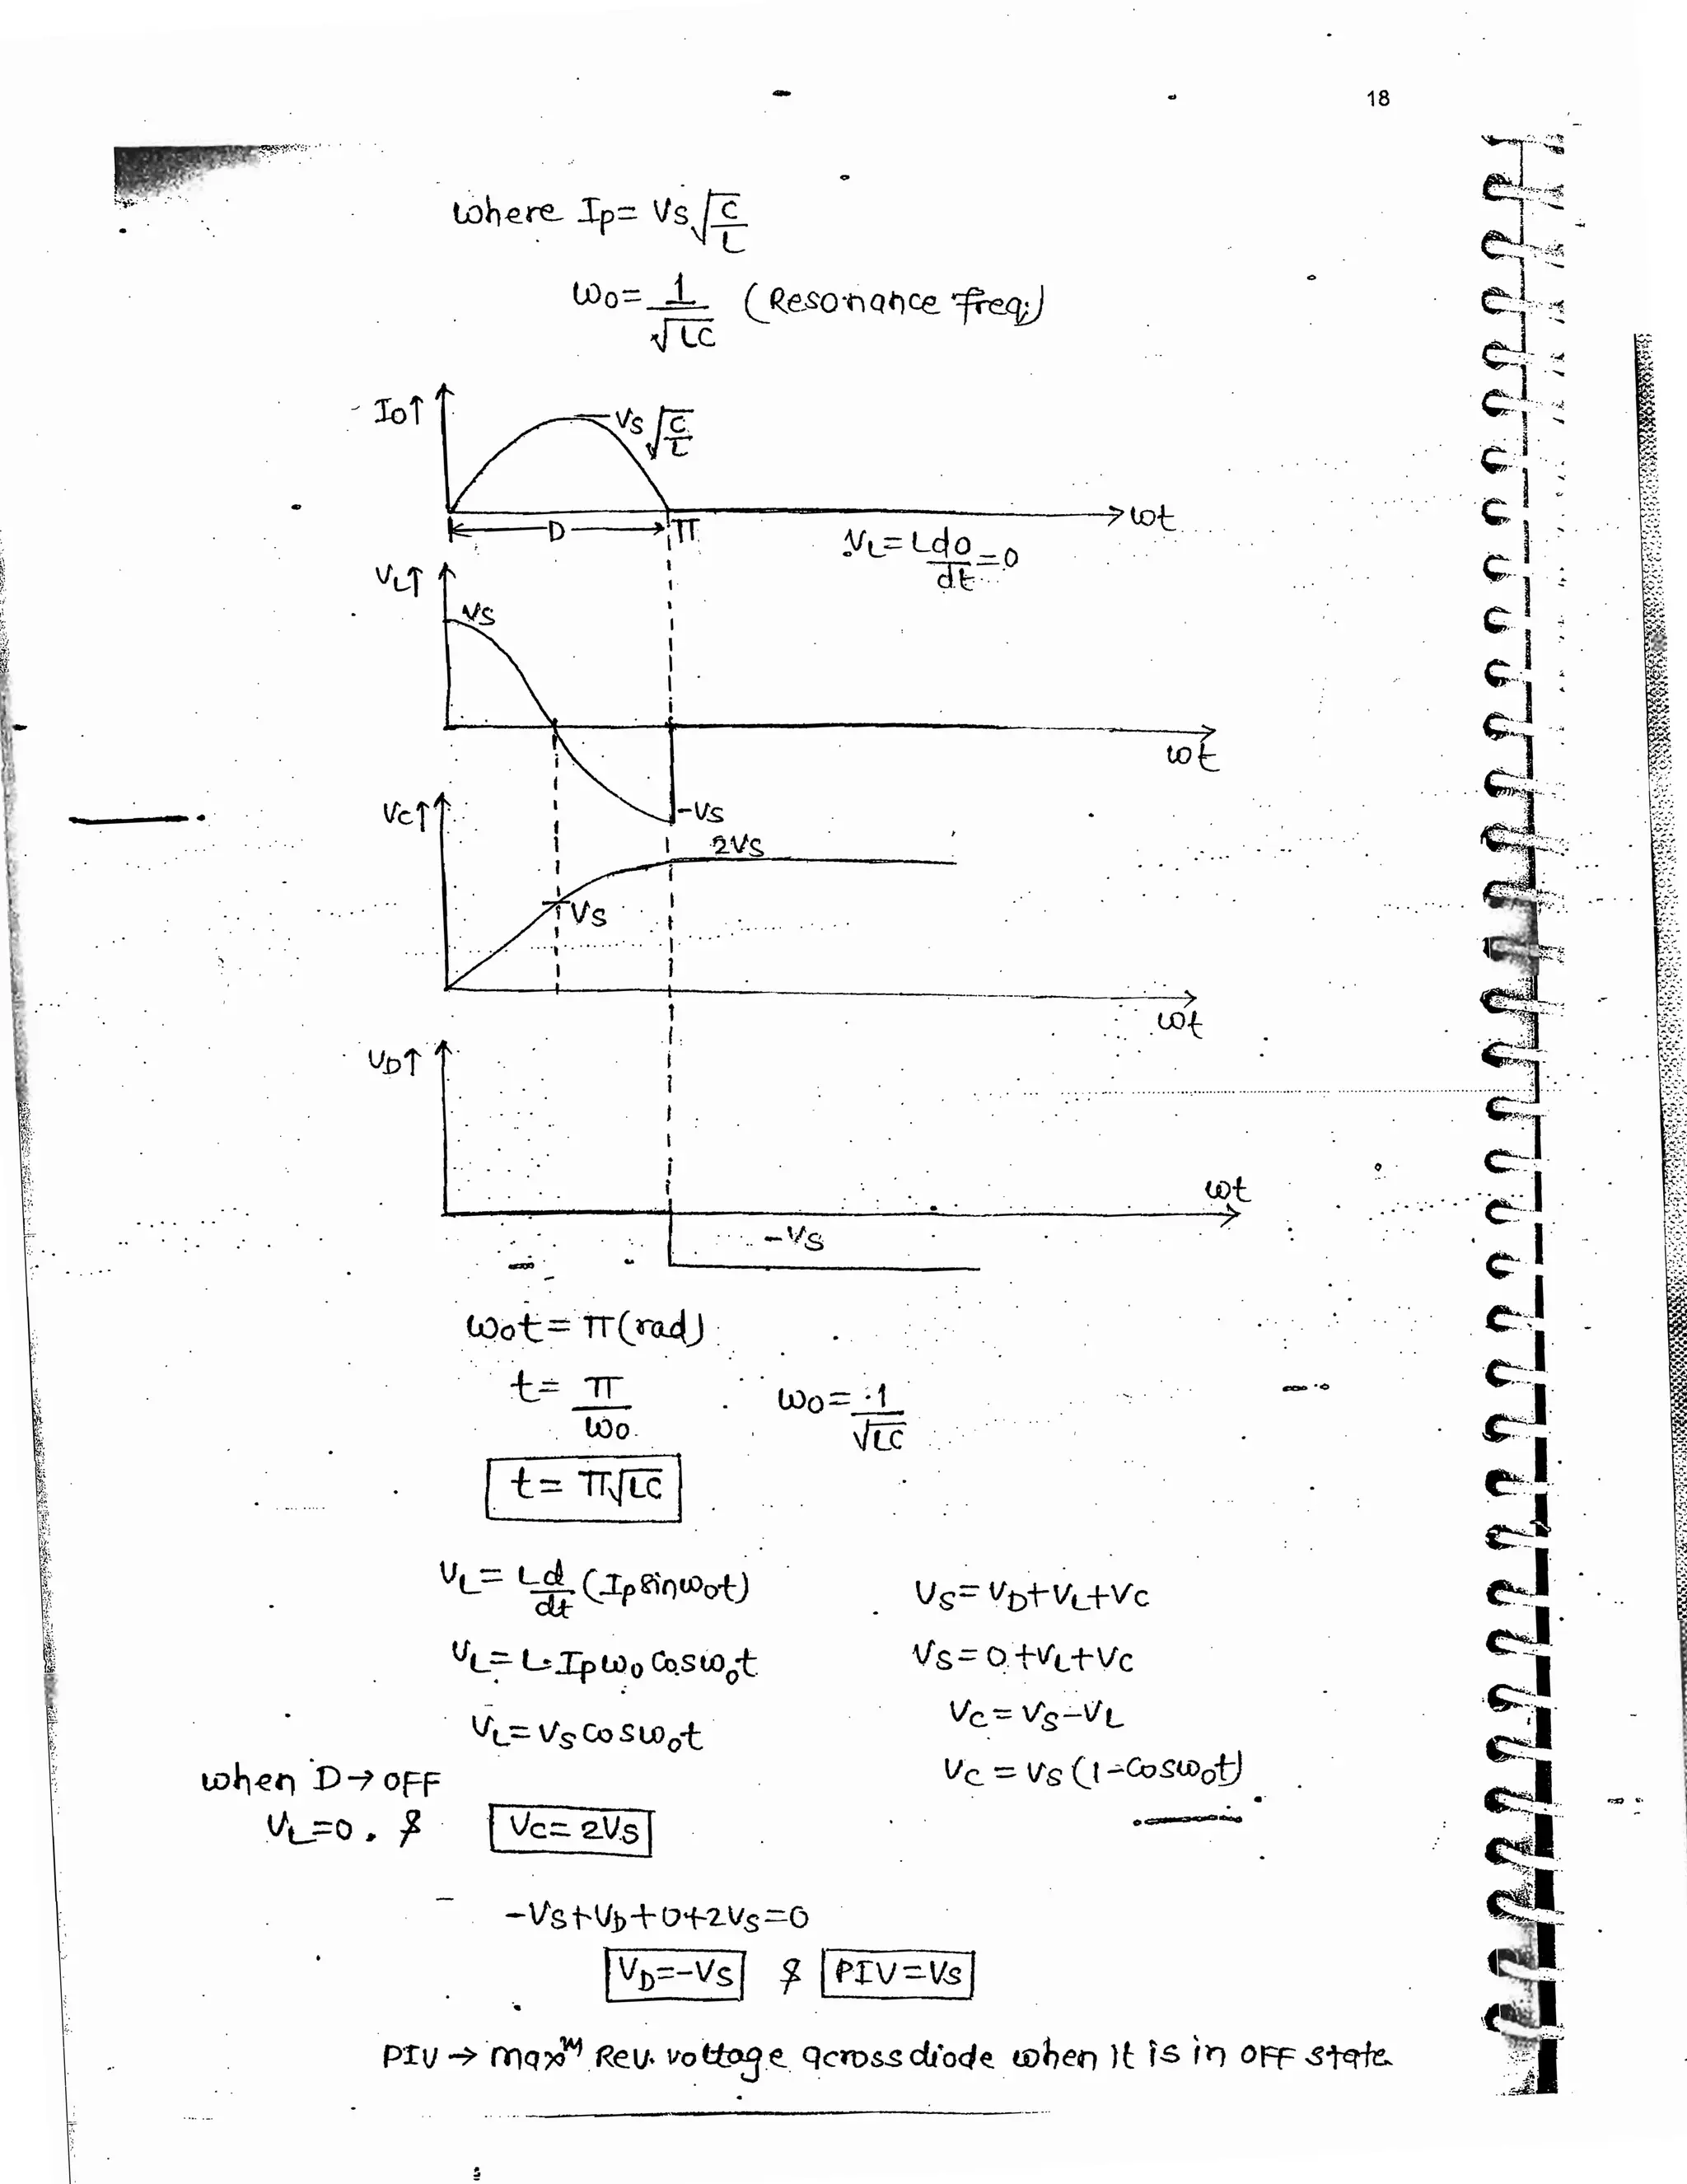 18
where Ip = Vs√(C/L)
ω0 = 1/√LC (Resonance freq.)
I0↑
Vs√(C/L)
D π
ωt
VL = L d0/dt = 0
VL↑
Vs
ωt
-Vs
Vc↑
2Vs
Vs
ωt
VD↑
ωt
-Vs
ω0t = π (rad)
t = π/ω0 ω0 = 1/√LC
t = π√LC
VL = L d/dt (Ip sinω0t) Vs = VD+VL+Vc
VL = L·Ip ω0 Cosω0t Vs = 0+VL+Vc
VL = Vs Cosω0t Vc = Vs-VL
Vc = Vs (1-Cosω0t)
when D→OFF
VL=0. & Vc = 2Vs
-Vs+VD+0+2Vs=0
VD=-Vs & PIV=Vs
PIV → maxᵐ Rev. voltage across diode when it is in OFF state